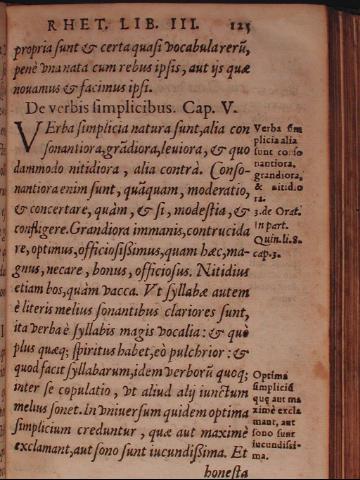 RHET. LIB. III. 125
propria sunt & certa quasi vocabula rerū,
penè vna nata cum rebus ipsis, aut ijs quæ
nouamus & facimus ipsi.
De verbis simplicibus. Cap. V.
VErba simplicia natura sunt, alia con
sonantiora, grādiora, leuiora, & quo
dammodo nitidiora, alia contrà. Conso-
nantiora enim sunt, quāquam, moderatio,
& concertare, quàm, & si, modestia, &
confligere. Grandiora immanis, contrucida
re, optimus, officiosissimus, quam hæc, ma-
gnus, necare, bonus, officiosus. Nitidius
etiam bos, quàm vacca. Vt syllabæ autem
è literis melius sonantibus clariores sunt,
ita verba è syllabis magis vocalia: & quò
plus quæq; spiritus habet, eò pulchrior: &
quod facit syllabarum, idem verborū quoq;
inter se copulatio, vt aliud alij iunctum
melius sonet. In vniuersum quidem optima
simplicium creduntur, quæ aut maximè
exclamant, aut sono sunt iucundissima. Et
honesta
Verba sim
plicia alia
sunt conso
nantiora,
grandiora,
& nitidio
ra.
3. de Orat.
in part.
Quin. li. 8.
cap. 3.
Optima
simpliciū
quę aut ma
ximè excla
mant, aut
sono sunt
iucundissi-
ma.